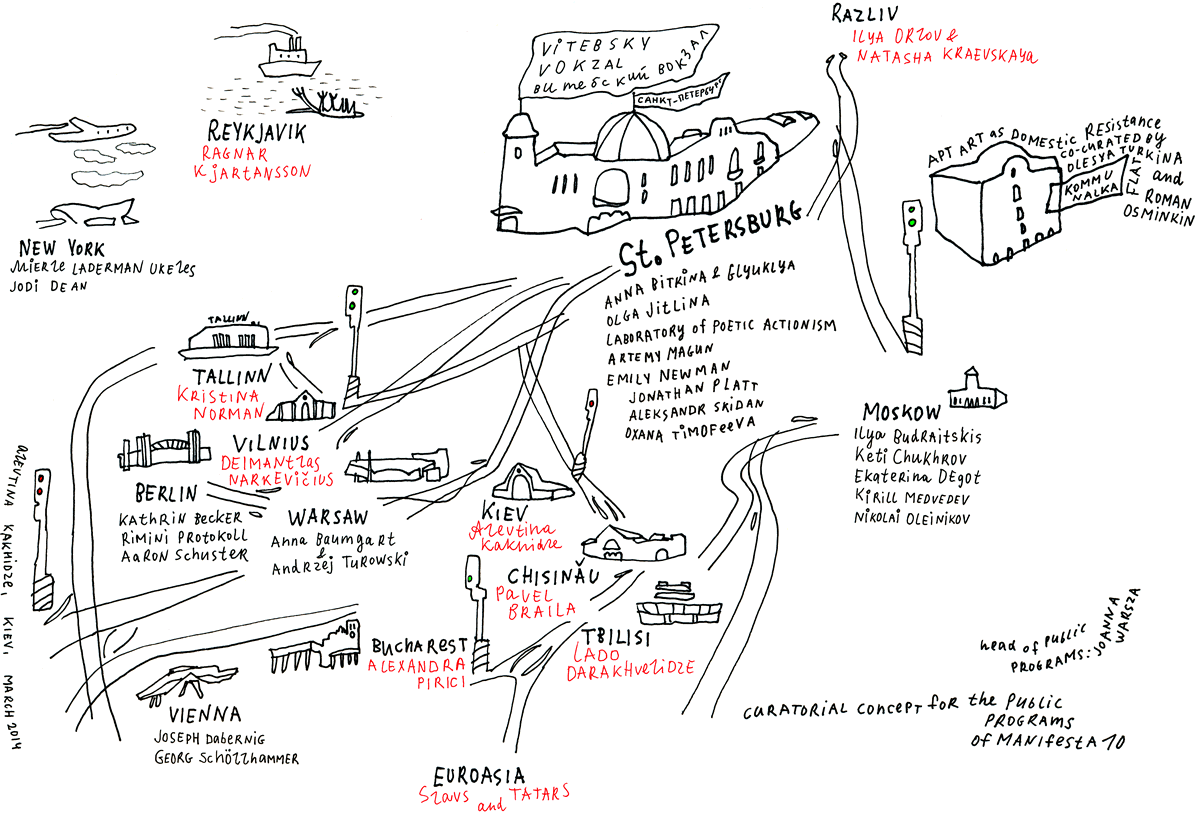 RAZLIV
ILYA ORLOV &
NATASHA KRAEVSKAYA
VITEBSKY
VOKZAL
ВИТЕБСКИЙ ВОКЗАЛ
САНКТ-ПЕТЕРБУРГ
REYKJAVIK
RAGNAR
KJARTANSSON
NEW YORK
MIERLE LADERMAN UKELES
JODI DEAN
APT ART as DOMESTIC RESISTANCE
CO-CURATED BY
OLESYA TURKINA
and
ROMAN
OSMINKIN
KOMMU
NALKA
FLAT
St. PETERSBURG
ANNA BITKINA & GLYUKLYA
OLGA JITLINA
LABORATORY of POETIC ACTIONISM
ARTEMY MAGUN
EMILY NEWMAN
JONATHAN PLATT
ALEKSANDR SKIDAN
OXANA TIMOFEEVA
TALLINN
TALLINN
KRISTINA
NORMAN
VILNIUS
DEIMANTLAS
NARKEVIČIUS
BERLIN
KATHRIN BECKER
RIMINI PROTOKOLL
AARON SCHUSTER
WARSAW
Anna BAUMGART
&
ANDRZEJ TUROWSKI
KIEV
Alevtina
Kakhidze
MOSKOW
Ilya BUDRAITSKIS
KETI CHUKHROV
EKATERINA DEGOT
KIRILL MEDVEDEV
NIKOLAI OLEINIKOV
CHISINĂU
PAVEL
BRAILA
TBILISI
LADO
DARAKHVELIDZE
BUCHAREST
ALEXANDRA
PIRICI
VIENNA
JOSEPH DABERNIG
GEORG SCHÖLLHAMMER
EUROASIA
SLAVS and TATARS
ALEVTINA KAKHIDZE, KIEV, MARCH 2014
head of PUBLIC
PROGRAMS: JOANNA
WARSZA
CURATORIAL CONCEPT FOR the PUBLIC
PROGRAMS
of MANIFESTA 10